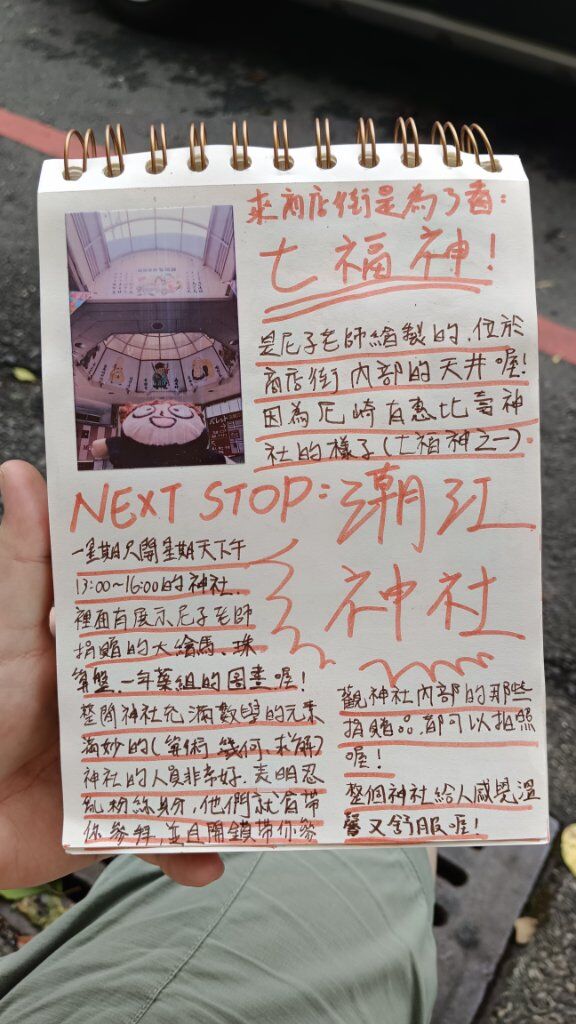 來商店街是為了看:
七福神!
是尼子老師繪製的,位於
商店街內部的天井喔!
因為尼崎有惠比壽神
社的樣子(七福神之一).
NEXT STOP: 潮江
神社
一星期只開星期天下午
13:00~16:00的神社.
裡面有展示尼子老師
捐贈的大繪馬、珠
算盤,一年葉組的圖畫喔!
整間神社充滿數學的元素
滿妙的(算術、幾何、求解)
神社的人員非常好,表明忍
亂粉絲身份,他們就會帶
你參拜,並且開鎖帶你參
觀神社內部的那些
捐贈品,都可以拍照
喔!
整個神社給人感覺溫
馨又舒服喔!